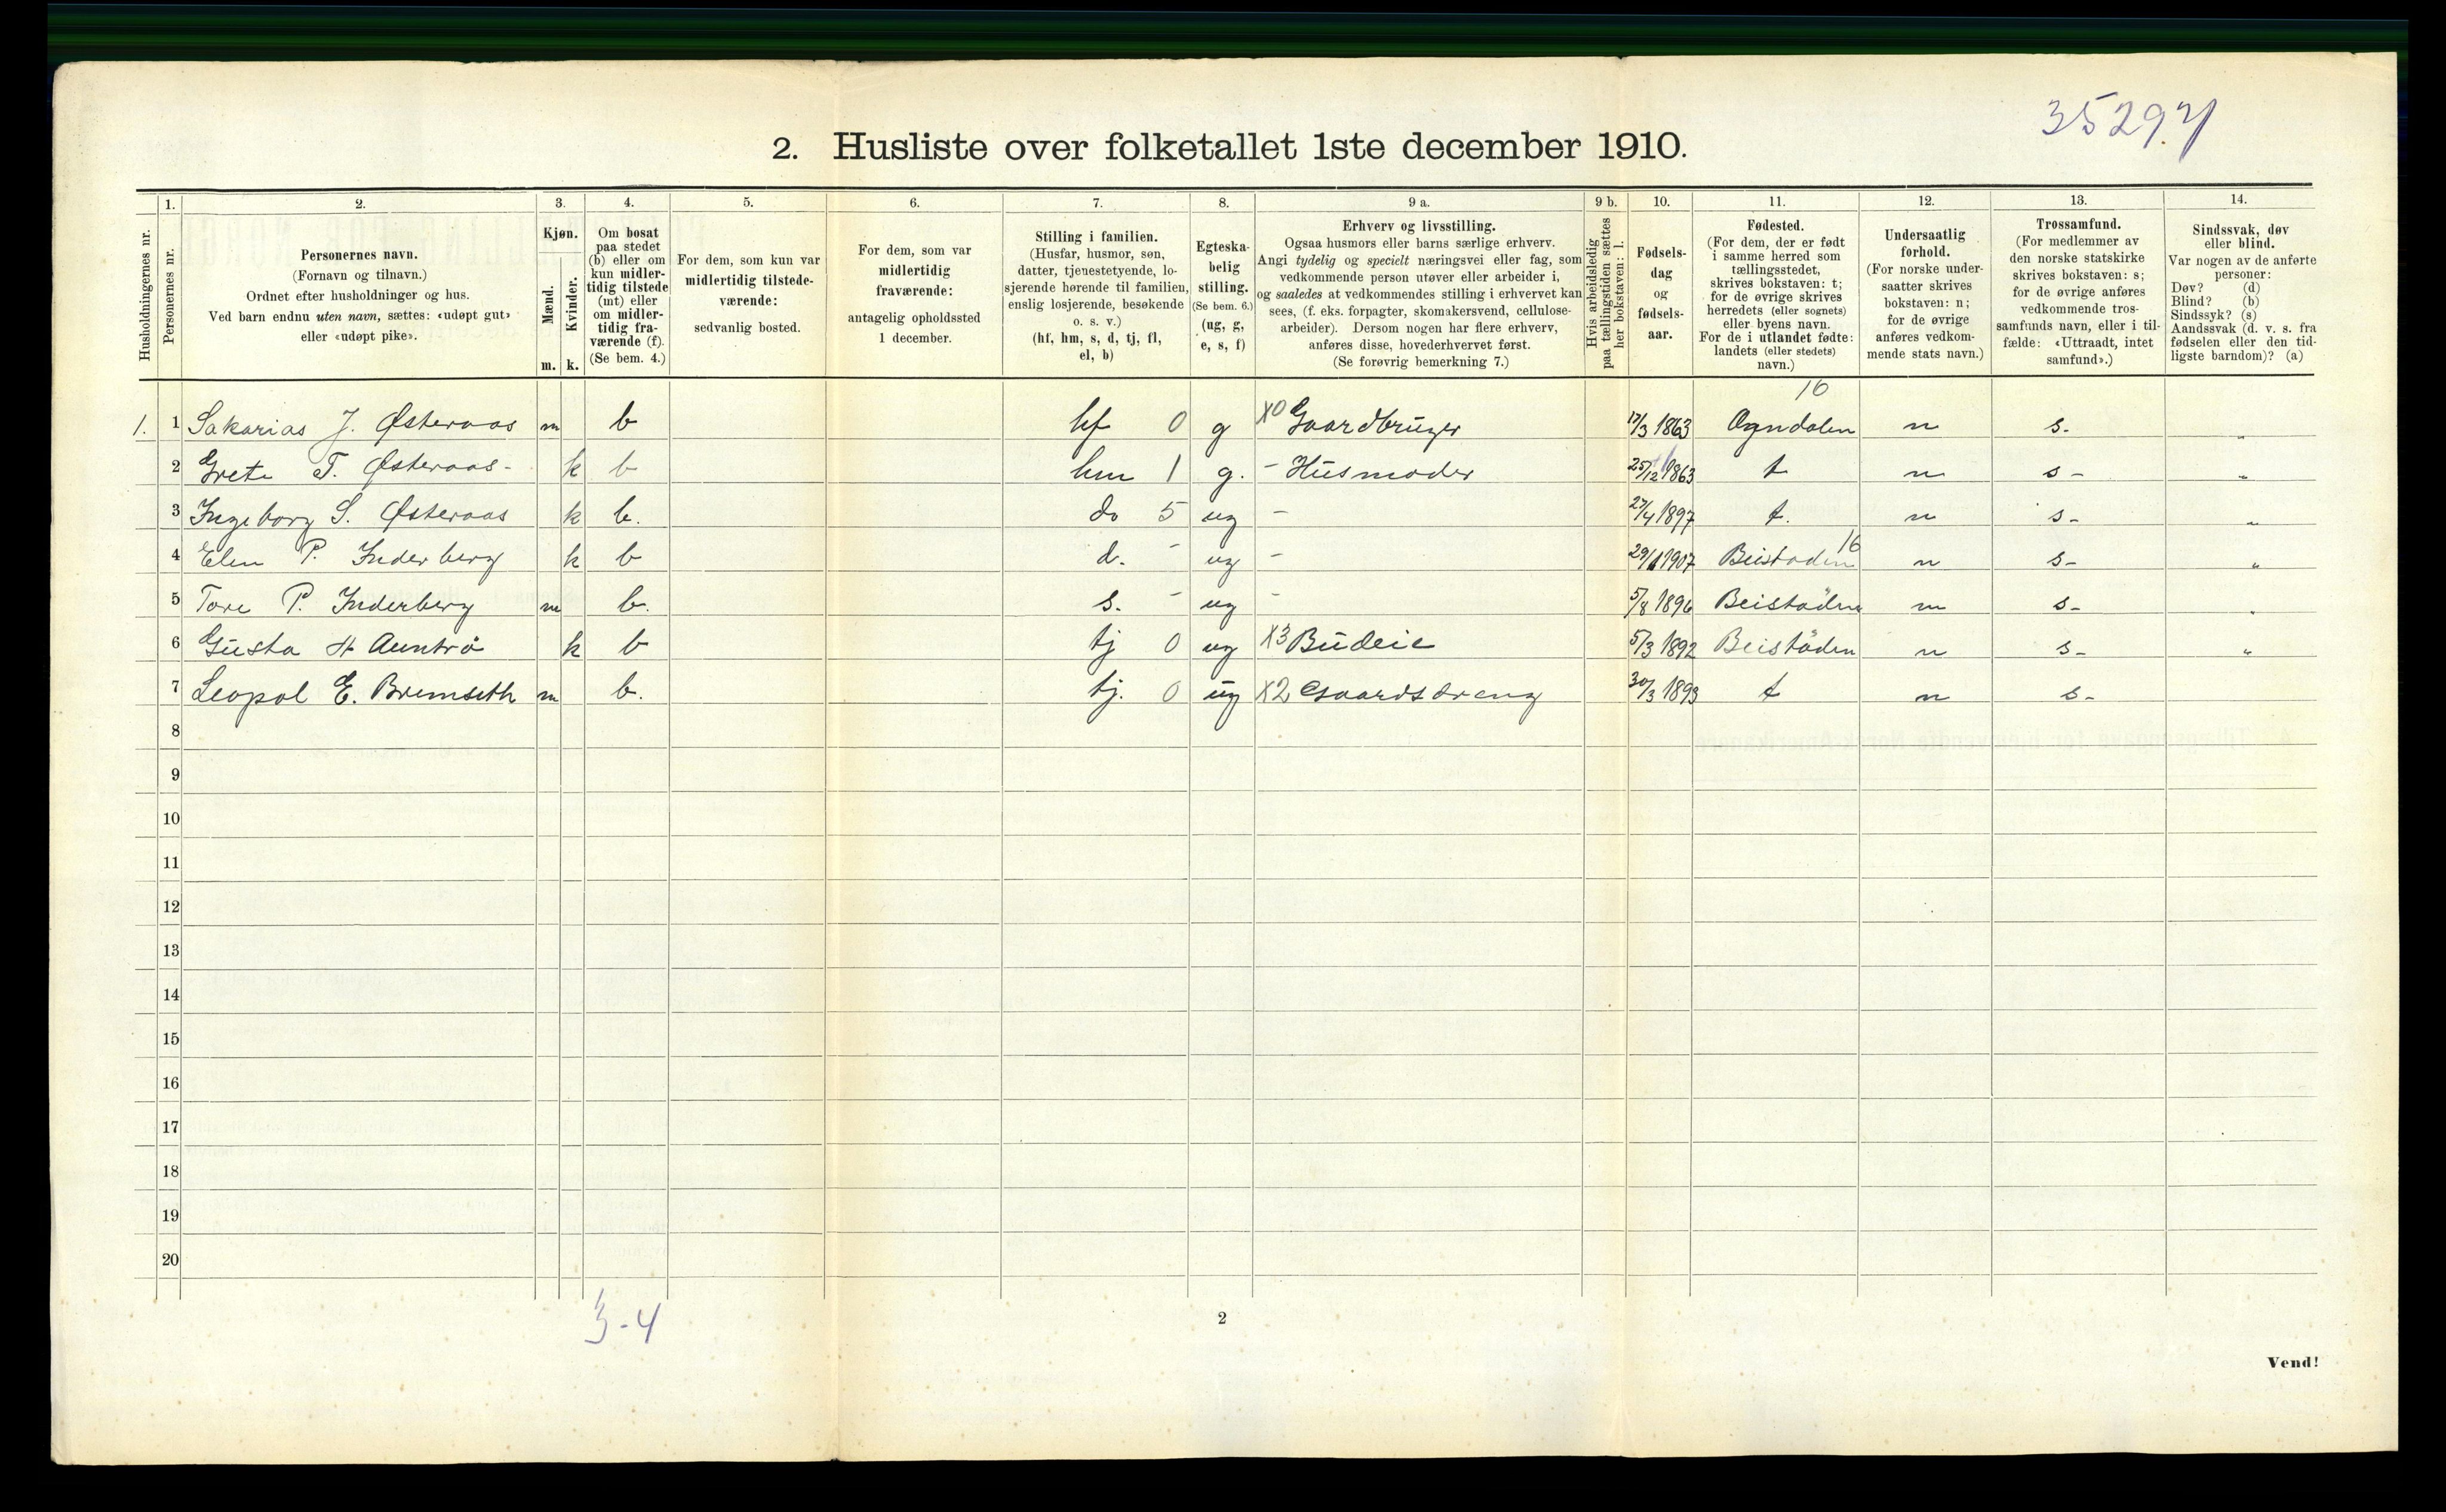 35297
2. Husliste over folketallet 1ste december 1910.
1. 2. 3. 4. 5. 6. 7. 8. 9 a. 9 b. 10. 11. 12. 13. 14.
Husholdningernes nr.
Personernes nr.
Personernes navn.
(Fornavn og tilnavn.)
Ordnet efter husholdninger og hus.
Ved barn endnu uten navn, sættes: «udøpt gut»
eller «udøpt pike».
Kjøn.
Mænd.
Kvinder.
m. k.
Om bosat
paa stedet
(b) eller om
kun midler-
tidig tilstede
(mt) eller
om midler-
tidig fra-
værende (f).
(Se bem. 4.)
For dem, som kun var
midlertidig tilstede-
værende:
sedvanlig bosted.
For dem, som var
midlertidig
fraværende:
antagelig opholdssted
1 december.
Stilling i familien.
(Husfar, husmor, søn,
datter, tjenestetyende, lo-
sjerende hørende til familien,
enslig losjerende, besøkende
o. s. v.)
(hf, hm, s, d, tj, fl,
el, b)
Egteska-
belig
stilling.
(Se bem. 6.)
(ug, g,
e, s, f)
Erhverv og livsstilling.
Ogsaa husmors eller barns særlige erhverv.
Angi tydelig og specielt næringsvei eller fag, som
vedkommende person utøver eller arbeider i,
og saaledes at vedkommendes stilling i erhvervet kan
sees, (f. eks. forpagter, skomakersvend, cellulose-
arbeider). Dersom nogen har flere erhverv,
anføres disse, hovederhvervet først.
(Se forøvrig bemerkning 7.)
Hvis arbeidsledig
paa tællingstiden sættes
her bokstaven: l.
Fødsels-
dag
og
fødsels-
aar.
Fødested.
(For dem, der er født
i samme herred som
tællingsstedet,
skrives bokstaven: t;
for de øvrige skrives
herredets (eller sognets)
eller byens navn.
For de i utlandet fødte:
landets (eller stedets)
navn.)
Undersaatlig
forhold.
(For norske under-
saatter skrives
bokstaven: n;
for de øvrige
anføres vedkom-
mende stats navn.)
Trossamfund.
(For medlemmer av
den norske statskirke
skrives bokstaven: s;
for de øvrige anføres
vedkommende tros-
samfunds navn, eller i til-
fælde: «Uttraadt, intet
samfund».)
Sindssvak, døv
eller blind.
Var nogen av de anførte
personer:
Døv? (d)
Blind? (b)
Sindssyk? (s)
Aandssvak (d. v. s. fra
fødselen eller den tid-
ligste barndom)? (a)
16
1. 1 Sakarias J. Østeraas m b hf 0 g X0 Gaardbruger 17/3 1863 Ogndalen n s. "
2 Grete T. Østeraas- k b hm 1 g. - Husmoder 25/12 1863 t n s - "
3 Ingeborg S. Østeraas k b. do 5 ug - 27/4 1897 t. n s - "
16
4 Elen P. Inderberg k b d. - ug - 29/1 1907 Beistaden n s - "
5 Tore P. Inderberg m b. s. - ug - 5/8 1896 Beistaden n s - "
6 Gusta H Auntrø k b tj 0 ug X3 Budeie 5/3 1892 Beistaden n s - "
7 Leopol E. Bremseth m b. tj. 0 ug X2 Gaardsdreng 30/3 1893 t n s -
8
9
10
11
12
13
14
15
16
17
18
19
20
3-4
2
Vend!